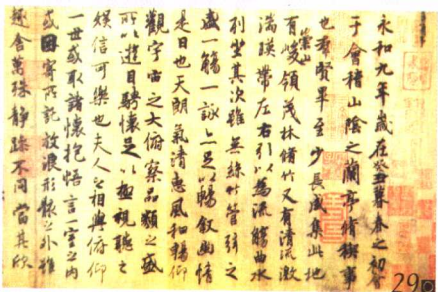 永和九年歲在癸丑暮春之初會
于會稽山陰之蘭亭脩稧事
也羣賢畢至少長咸集此地
有崇山峻領茂林脩竹又有清流激
湍暎帶左右引以為流觴曲水
列坐其次雖無絲竹管弦之
盛一觴一詠亦足以暢敘幽情
是日也天朗氣清惠風和暢仰
觀宇宙之大俯察品類之盛
所以遊目騁懷足以極視聽之
娛信可樂也夫人之相與俯仰
一世或取諸懷抱悟言一室之內
或因寄所託放浪形骸之外雖
趣舍萬殊靜躁不同當其欣
29